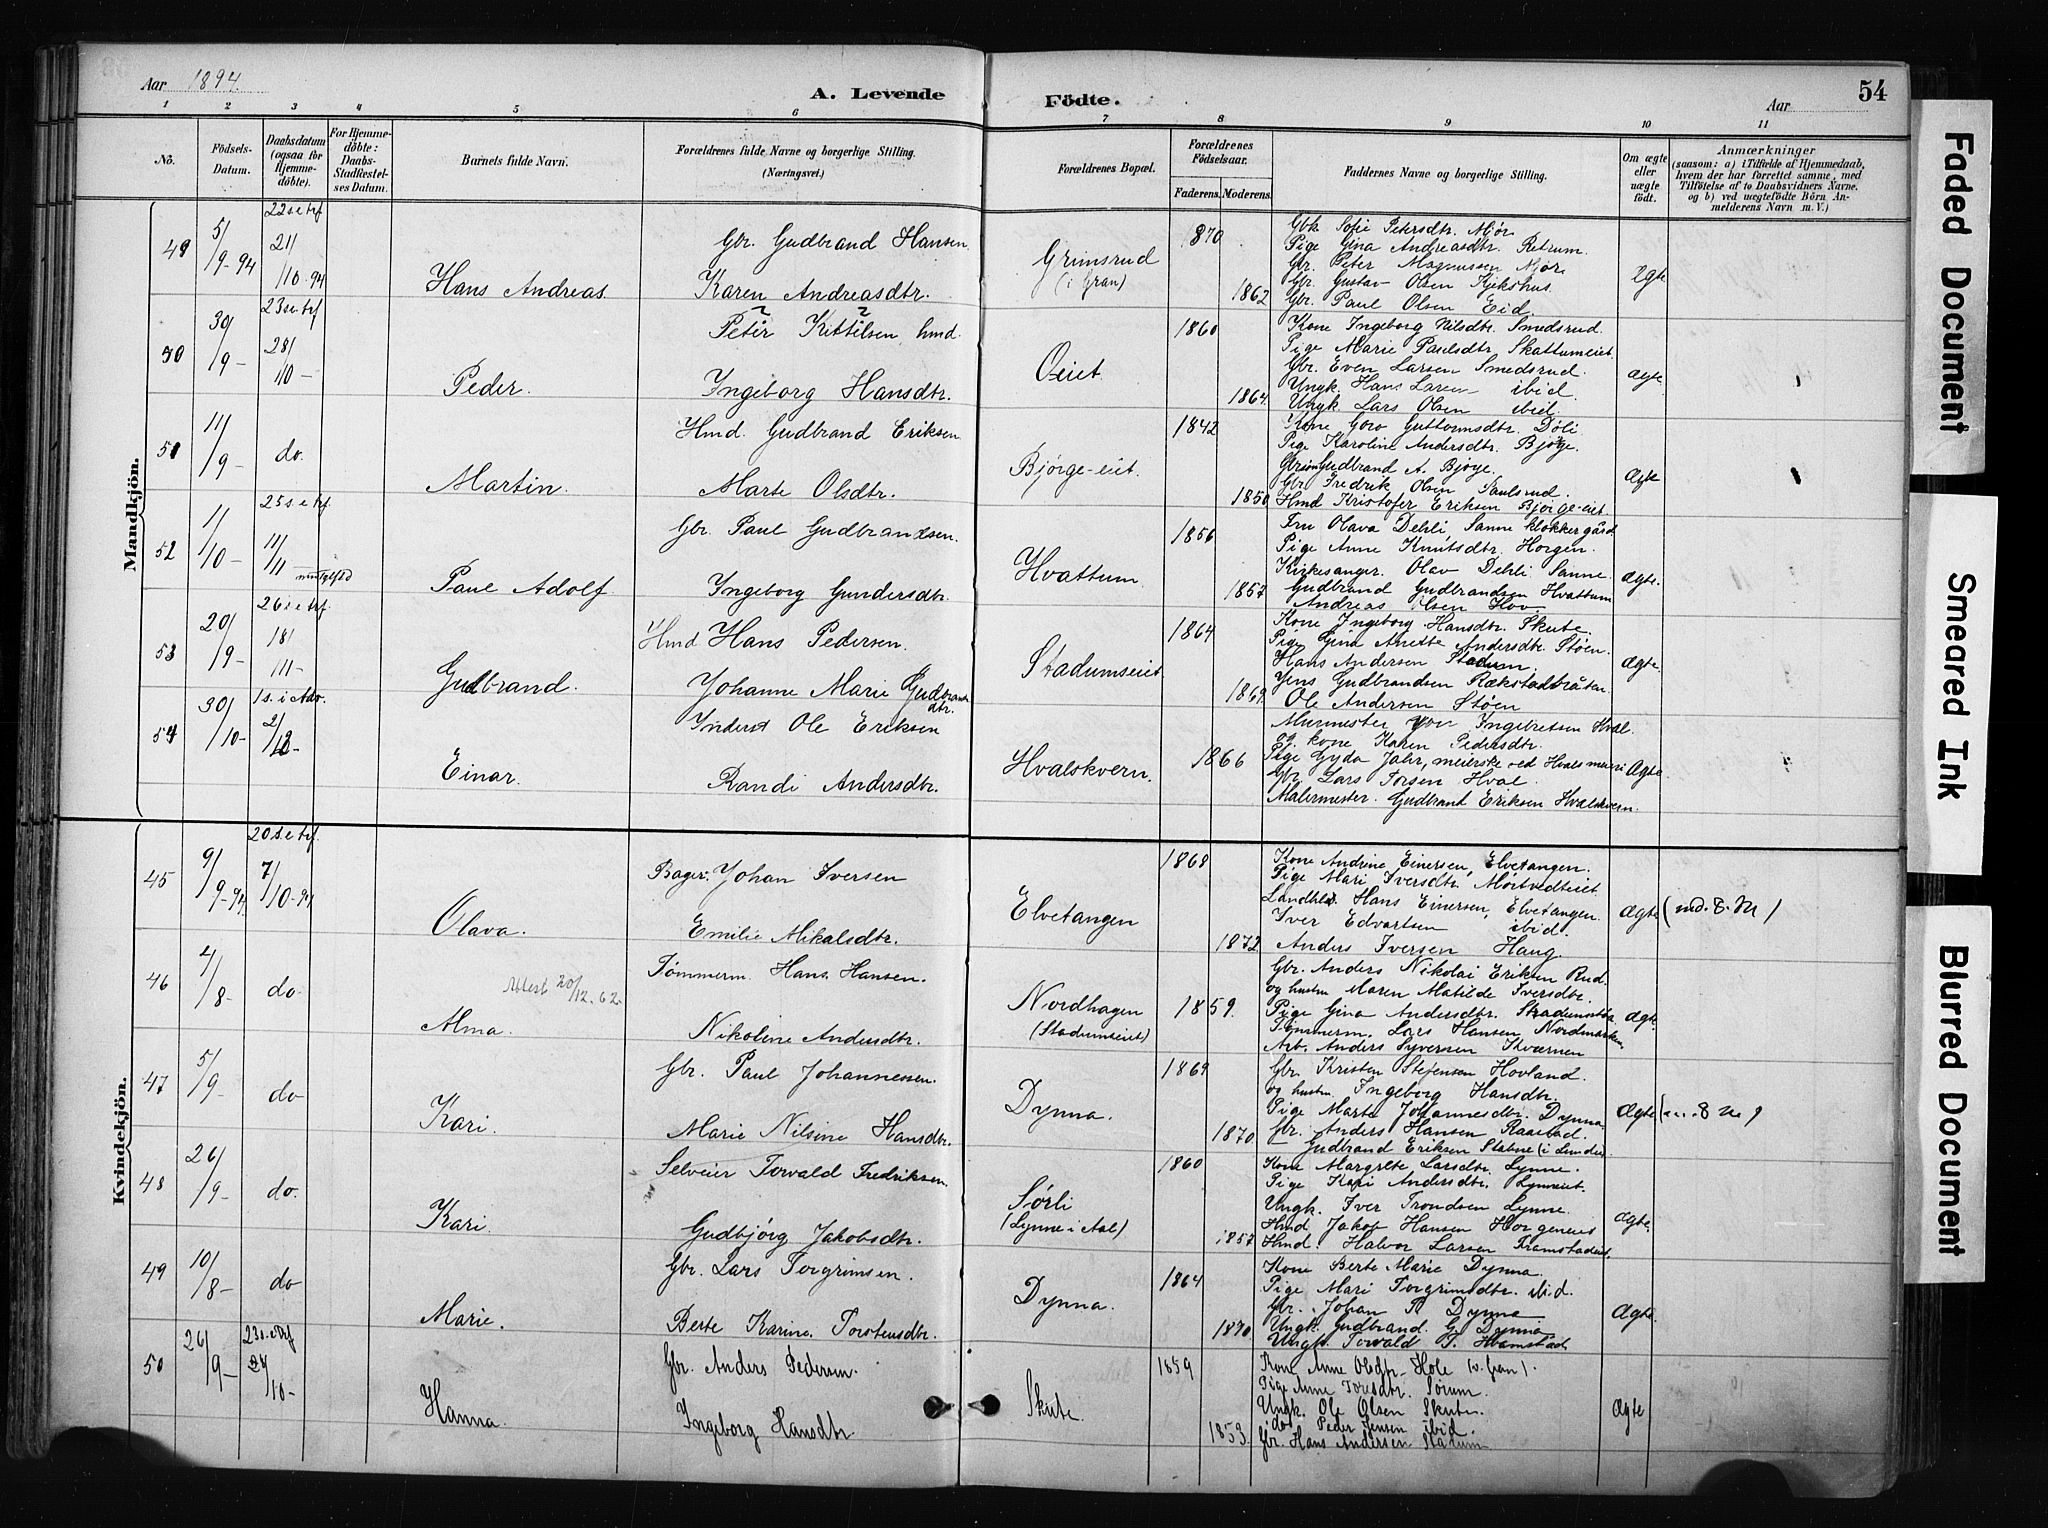 Aar 1894.
A. Levende
Födte.
Aar
54
1 2 3 4 5 6 7 8 9 10 11
No.
Födsels-
Datum.
Daabsdatum
(ogsaa for
Hjemme-
döbte).
For Hjemme-
döbte:
Daabs-
Stadfæstel-
ses Datum.
Barnets fulde Navn.
Forældrenes fulde Navne og borgerlige Stilling.
(Næringsvei.)
Forældrenes Bopæl.
Forældrenes
Födselsaar.
Faderens. Moderens.
Faddernes Navne og borgerlige Stilling.
Om ægte
eller
uægte
födt.
Anmærkninger
(saasom: a) i Tilfælde af Hjemmedaab,
hvem der har forrettet samme, med
Tilföielse af to Daabsvidners Navne.
og b) ved uægtefödte Börn An-
melderens Navn m. V.)
Mandkjön.
49
5/9-94
22 s. e. trf.
21/10-94
Hans Andreas.
Gbr. Gudbrand Hansen
Karen Andreasdtr.
Grimsrud
(i Gran)
1870
1862
Gbk Sofie Petersdtr. Mjør
Pige Gina Andreasdtr. Retrum.
Gbr. Peter Magnussen Mjør.
Gbr. Gustav Olsen Kjekshus.
Gbr. Paul Olsen Eid.
Ægte
50
30/9-
23 s. e. trf
28/10-
Peder.
Peter Kittilsen hmd.
Ingeborg Hansdtr.
Oeiet
1860
1864.
Kone Ingeborg Nilsdtr. Smedsrud.
Pige Marie Paulsdtr. Skattumeiet.
Gbr. Even Larsen Smedsrud.
Ungk. Hans Larsen ibid.
Ungk Lars Olsen ibid.
Ægte
51
11/9-
do.
Martin.
Hmd. Gudbrand Eriksen
Marte Olsdtr.
Bjørge-eiet.
1842
1850
Kone Goro Guttormsdtr. Döli
Pige Karoline Andersdtr. Bjørge.
Gudbrand A. Bjørge.
Gbr. Fredrik Olsen Paulsrud.
Hmd Kristofer Eriksen Bjørge-eiet
Ægte
52
1/10-
25 s. e. trf.
11/11
Paul Adolf
Gbr. Paul Gudbrandsen.
Ingeborg Gundersdtr.
Hvattum
1856
1857
Fru Olava Dehli Sanne klokkergård
Pige Anne Knutsdtr. Horgen.
Kirkesanger. Olav Dehli Sanne
Gudbrand Gudbrandsen Hvattum
Andreas Olsen Hov.
Ægte.
53
20/9-
26 s. e. trf
18/11-
Gudbrand.
Hmd Hans Pedersen.
Johanne Marie Gudbrands
dtr.
Stadumseiet
1864
1869.
Kone Ingeborg Hansdtr. Skute.
Pige Gina Anette Andersdtr. Støen.
Hans Andersen Stadum.
Jens Gudbrandsen Rækstadbråten.
Ole Andersen Støen
Ægte.
54
30/10-
1 s. i Adv.
2/12-
Einar.
Inderst Ole Eriksen
Randi Andersdtr.
Hvalskvern.
1866
Murmester Ingebretsen Hval.
og kone Karen Pedersdtr.
Pige Gyda Jahr, meierske ved Hvals meieri
Gbr. Lars Torsen Hval.
Malermester. Gudbrand Eriksen Hvalskvern.
Ægte.
Kvindekjön.
45
9/9-94.
20 s. e. trf.
7/10-94
Olava.
Bager. Johan Iversen
Emilie Mikalsdtr.
Elvetangen
1868
1872
Kone Andrine Einersen, Elvetangen.
Pige Mari Iversdtr. Mortvedteiet
Landhdl. Hans Einersen, Elvetangen.
Iver Edvartsen ibid.
Anders Iversen Haug.
Ægte
46
4/8-
do
Attest 20/12.62.
Alma.
Tømmerm. Hans Hansen.
Nikoline Andersdtr.
Nordhagen
(Stadumseiet)
1859.
Gbr. Anders Nikolai Eriksen Rud.
og hustru Maren Matilde Iversdtr.
Pige Gina Andersdtr.
Tømmerm. Lars Hansen Nordmarken.
Arb. Anders Syversen Kværnen
Ægte.
47
5/9-
do
Kari.
Gbr. Paul Johannessen.
Marie Nilsine Hansdtr.
Dynna.
1869
1870
Gbr. Kristen Stefensen Hovland.
og hustru Ingeborg Hansdtr.
Pige Marte Johannesdtr. Dynna
Gbr. Anders Hansen Raastad.
Gudbrand Eriksen Stabne (i Lunder)
Ægte
48
26/9-
do.
Kari.
Selveier Torvald Fredriksen.
Gudbjörg Jakobsdtr.
Sørli
(Lynne i Aal)
1860
1857
Kone Margrete Larsdtr. Lynne.
Pige Kari Andersdtr. Lynneiet.
Ungk. Iver Trondsen Lynne.
Hmd Jakop Hansen Horgeneiet
Hmd. Halvor Larsen Framstadeiet.
Ægte.
49
10/8-
do
Marie.
Gbr. Lars Torgrimsen.
Berte Karine. Torstensdtr.
Dynna.
1864
1870
Kone Berte Marie Dynna.
Pige Mari Torgrimsdtr. ibid.
Gbr. Johan P. Dynna
Ungk. Gudbrand. G. Dynna
Ungk. Torvald T. Hvamstad.
Ægte.
50
26/9-
23 s. e. Trf
28/10-
Hanna.
Gbr. Anders Pedersen.
Ingeborg Hansdtr.
Skute.
1859
1853.
Kone Anne Olsdtr. Hole (v. Gran).
Pige Anne Toresdtr. Sørum.
Ungk. Ole Olsen Skute.
do Peder Jensen ibid.
Gbr. Hans Andersen Stadum
Ægte
Faded Document
Smeared Ink
Blurred Document